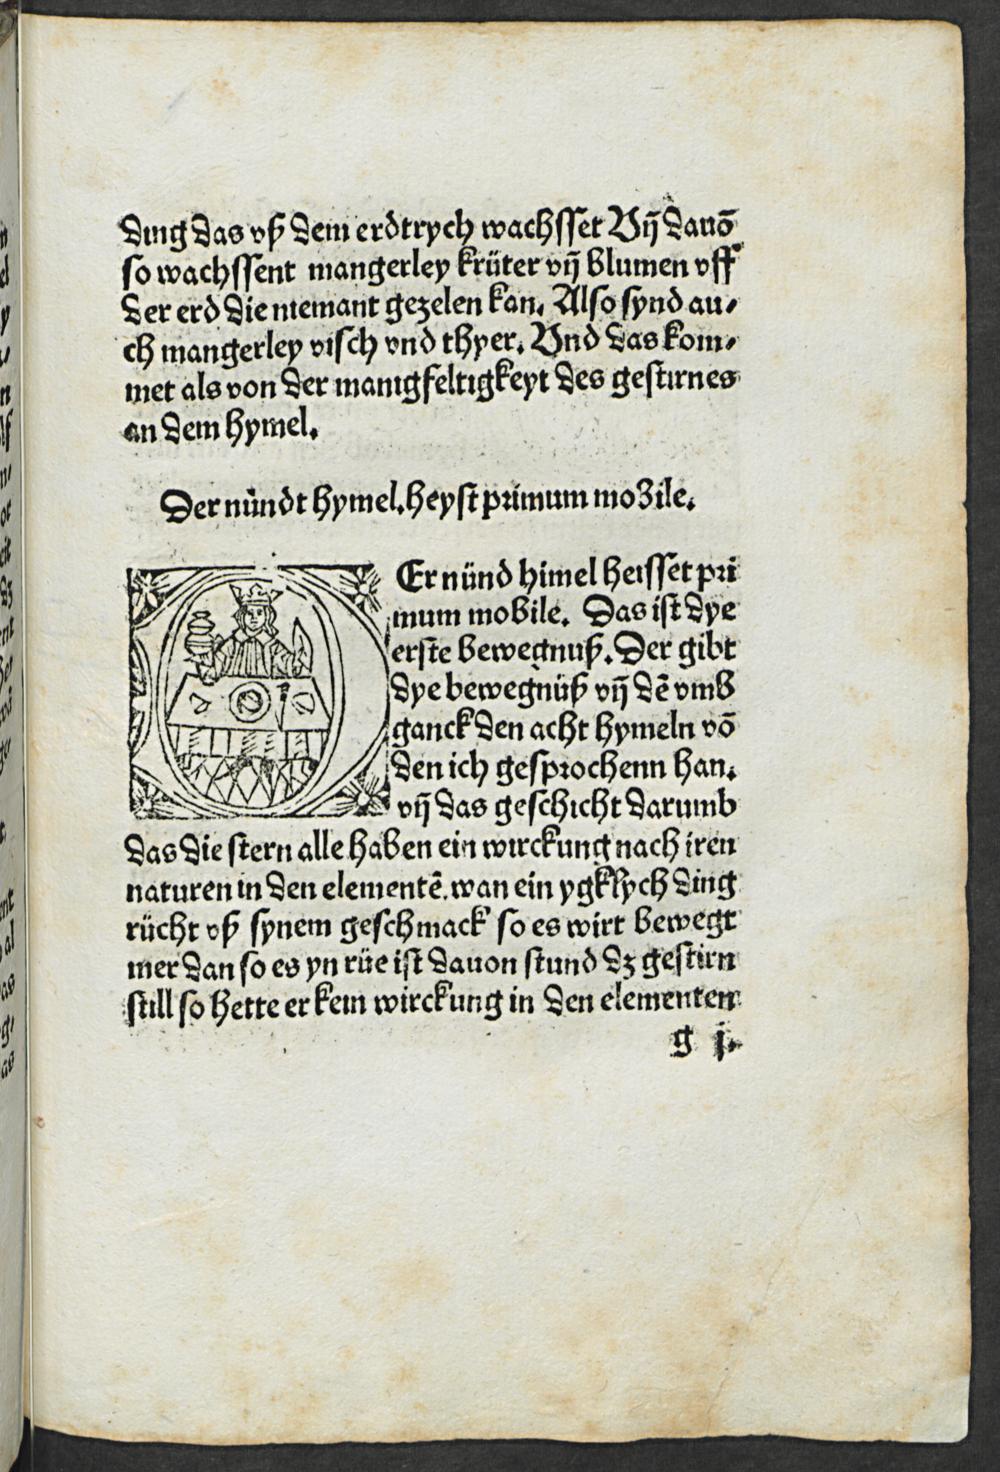 ding das vß dem erdtrych wachsset Vn̄ dauō
so wachssent mangerley krüter vn̄ blumen vff
der erd die niemant gezelen kan. Also synd au⸗
ch mangerley visch vnd thyer. Vnd das kom⸗
met als von der manigfeltigkeyt des gestirnes
an dem hymel.
Der nündt hymel. heyst primum mobile.
DEr nünd himel heisset pri
mum mobile. Das ist dye
erste bewegnuß. Der gibt
dye bewegnüß vn̄ dē vmb
ganck den acht hymeln vō
den ich gesprochenn han.
vn̄ das geschicht darumb
das die stern alle haben ein wirckung nach iren
naturen in den elementē. wan ein ygklych ding
rücht vß synem geschmack so es wirt bewegt
mer dan so es yn rüe ist dauon stund dz gestirn
still so hette er kein wirckung in den elementen
g j.